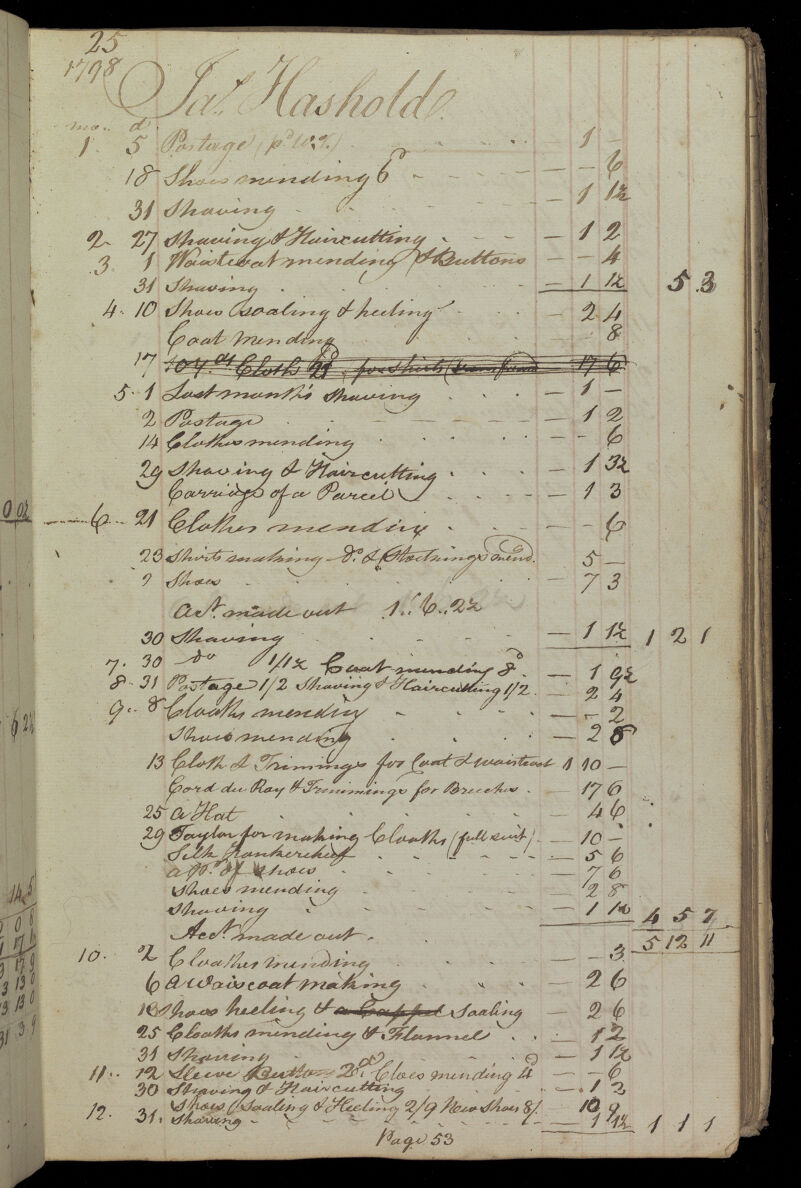 25
1798
Jas. Hashold
mo. d.
1 5 Postage 1 –
18 Shoes mending 6d – 6
31 Shaving – 1 1½
2 27 Shaving & Haircutting – 1 2
3 1 Waistcoat mending & Buttons – – 4
31 Shaving – 1 1½ 5 3
4 10 Shoes soaling & heeling – 2 4
Coat Mending 8
17 10 yds Cloth 17 6
5 1 Last month's shaving – 1 –
2 Postage – 1 2
14 Clothes mending – – 6
29 Shaving & Haircutting – 1 3½
Carriage of a Parcel – 1 3
6 21 Clothes mending – – 6
23 Shirts making Do. & Stockings mend. 5 –
? Shoes – 7 3
Act. made out 1 „ 6 „ 2½
30 Shaving – 1 1½ 1 2 1
7 30 do 1/1½ Coat mending 8d – 1 9½
8 31 Postage 1/2 Shaving & Haircutting 1/2 – 2 4
9 8 Cloaths mending – – 2
Shoes mending – 2 8
13 Cloth & Trimmings for Coat & waistcoat 1 10 –
Cord du Roy & Trimmings for Breeches – 17 6
25 a Hat – 4 6
29 Taylor for making Cloaths (full suit) – 10 –
Silk Hankercheif – 5 6
a Pr. of shoes – 7 6
Shoes mending – 2 8
Shaving – 1 1½ 4 5 7
Act. made out. 5 12 11
10 2 Cloathes mending – – 3
6 a waiscoat making – 2 6
13 Shoes heeling & a Cappel Soaling – 2 6
25 Cloaths mending & Flannel – 1 2
31 Shaving – 1 1½
11 12 Sleeve Buttons 2d Cloes mending 4d – – 6
30 Shaving & Haircutting – 1 3
Shoes Soaling & Heeling 2/9 New Shoes 8/ 10 9
12 31 Shaving – 1 1½ 1 1 1
Page 53
0 0½
6 2½
14 5
0 8
17 6
17 9
3 13 0
13 13 0
31 3 9